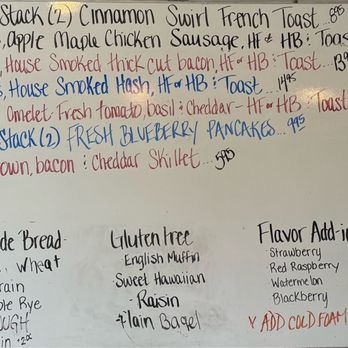 Stack (2) Cinnamon Swirl French Toast... 8.95
Apple Maple Chicken Sausage, HF & HB & Toas
House Smoked thick cut bacon, HF or HB & Toast... 13.9
House Smoked Hash, HF or HB & Toast... 14.95
Omelet-Fresh tomato, basil & Cheddar-HF or HB & Toast
Stack (2) FRESH BLUEBERRY PANCAKES... 9.95
own, bacon & Cheddar Skillet... 5.95
de Bread
Wheat
rain
ble Rye
OUGH
in + 2.00
Gluten free
English Muffin
Sweet Hawaiian
- Raisin
Plain Bagel
Flavor Add-in
Strawberry
Red Raspberry
Watermelon
Blackberry
ADD COLD FOAM